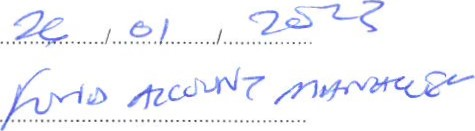 26, 01, 2023
FUND ACCOUNT MANAGER